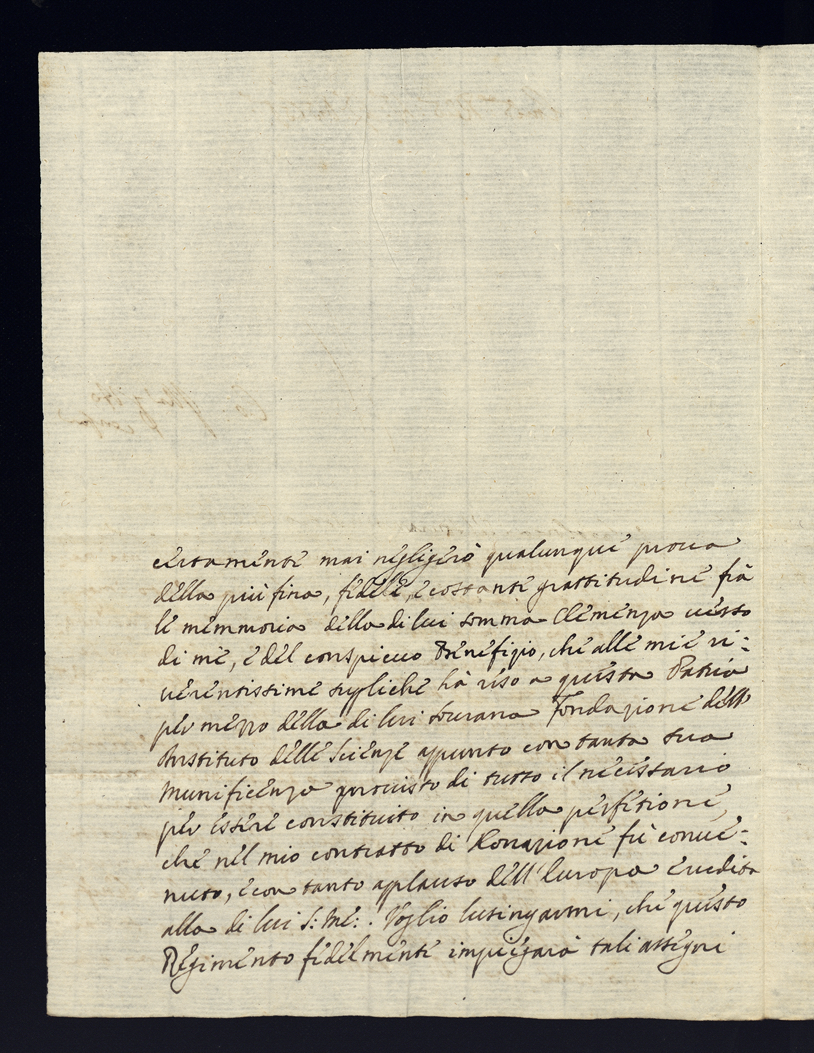 certamente mai negligerò qualunque proua
della più fina, fidele, e costante grattitudine frà
le memmoria della di lui somma Clemenza uerso
di me, e del conspicuo Benefizio, che alle mie ri:
uerentissime suppliche hà reso a questa Patria
per mezzo della di lui sourana Fondazione dell'
Instituto delle Scienze appunto con tanta sua
Munificenza prouisto di tutto il necessario
per essere constituito in quella perfetione,
che nel mio contratto di Donazione fù conue:
nuto, e con tanto applauso dell'Europa
alla di lui S: Me: . Voglio lusingarmi, che questo
Regimento fidelmente impiegarà tali assegni